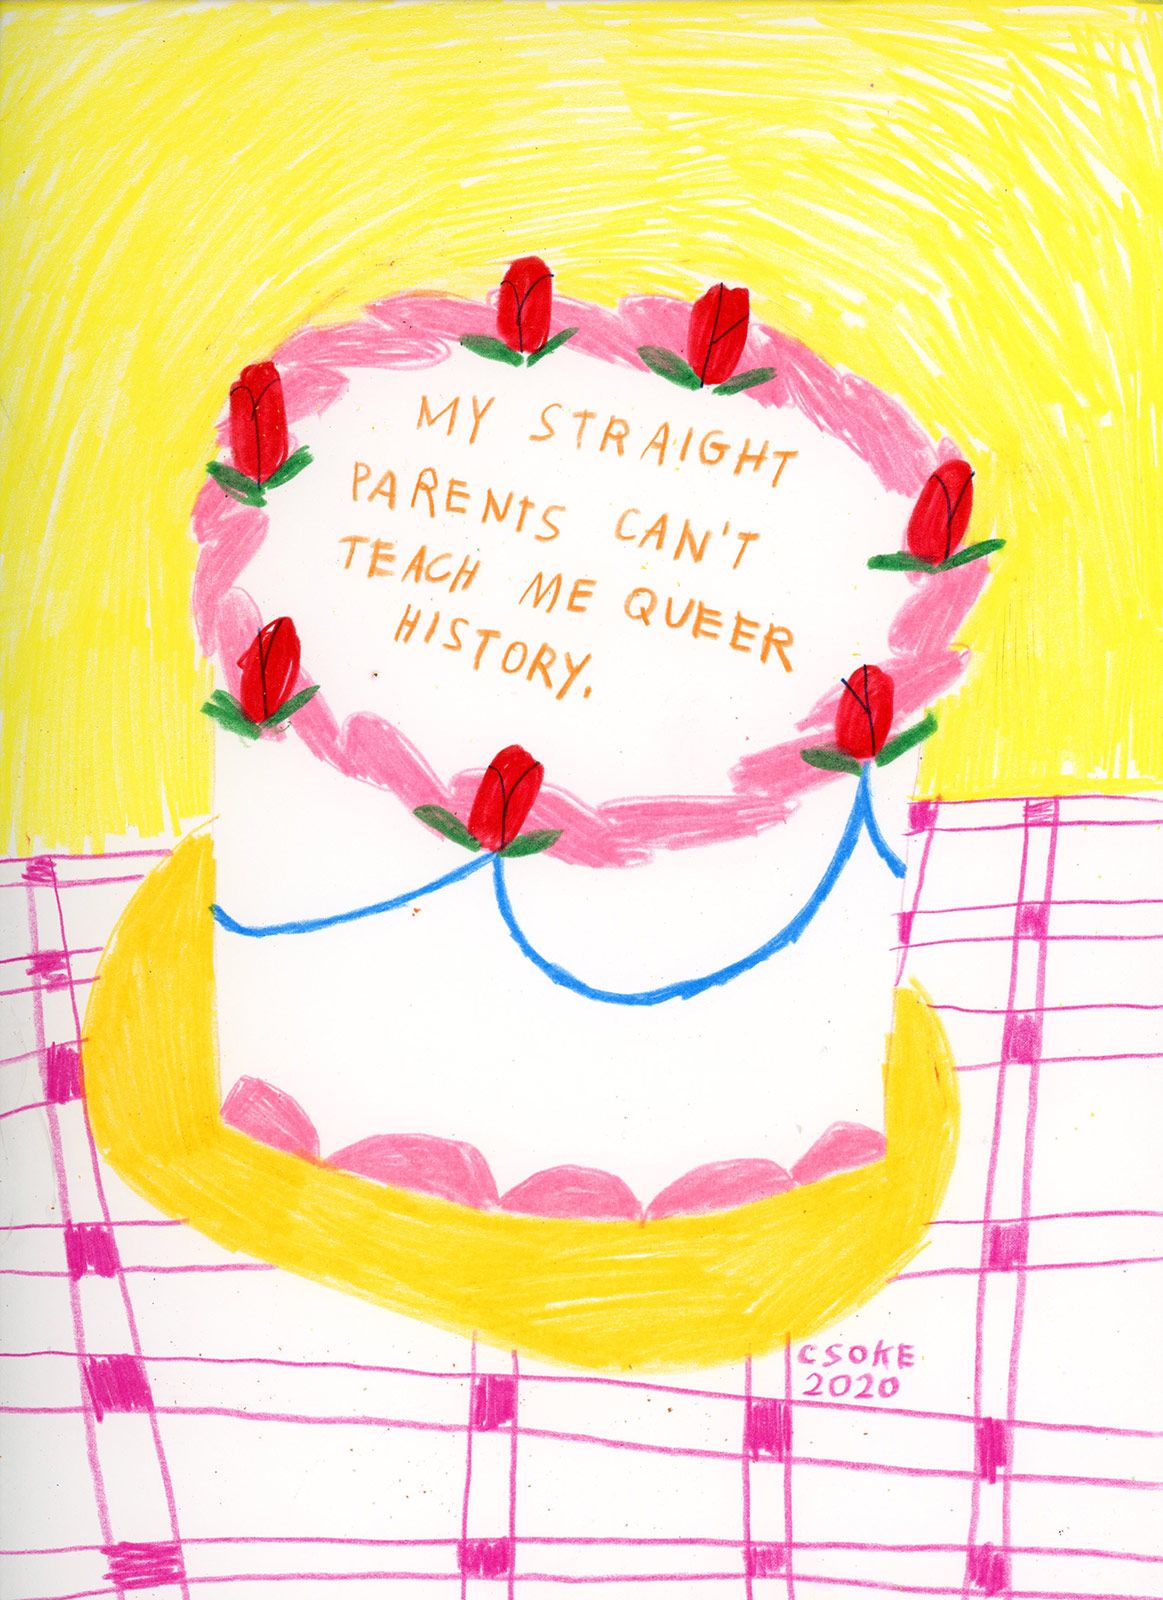 MY STRAIGHT
PARENTS CAN'T
TEACH ME QUEER
HISTORY.
CSOKE
2020